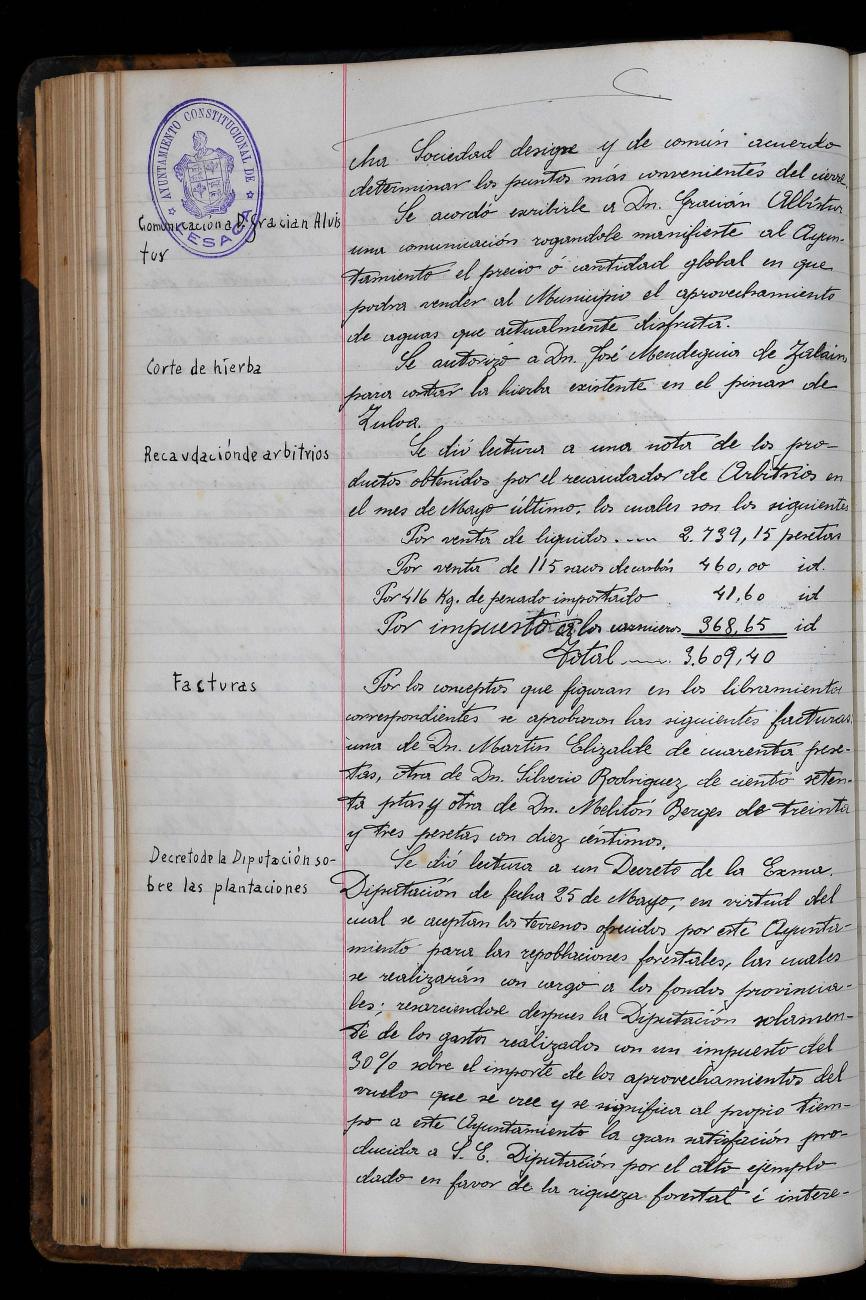 AYUNTAMIENTO CONSTITUCIONAL DE
LESACA
cha Sociedad designe y de común acuerdo
determinar los puntos más convenientes del cierre.
Comunicacion a D. Gracian Alvis
tur
Se acordó escribirle a Dn. Gracián Albistur
una comunicación rogandole manifieste al Ayun-
tamiento el precio ó cantidad global en que
podra vender al Municipio el aprovechamiento
de aguas que actualmente disfruta.
Corte de hierba
Se autorizó a Dn. José Mendeguia de Zalain
para cortar la hierba existente en el pinar de
Zuloa.
Recaudación de arbitrios
Se dió lectura a una nota de los pro-
ductos obtenidos por el recaudador de Arbitrios en
el mes de Mayo último, los cuales son los siguientes
Por venta de liquidos ..... 2.739,15 pesetas
Por venta de 115 sacos de carbón 460,00 id.
Por 416 Kg. de pescado importado 41,60 id
Por impuesto a los carniceros 368,65 id
Total ..... 3.609,40
Facturas
Por los conceptos que figuran en los libramientos
correspondientes se aprobaron las siguientes facturas:
una de Dn. Martin Elizalde de cuarenta pese-
tas, otra de Dn. Silverio Rodriguez de ciento seten-
ta ptas y otra de Dn. Melitón Berges de treinta
y tres pesetas con diez céntimos.
Decreto de la Diputación so-
bre las plantaciones
Se dió lectura a un Decreto de la Exma.
Diputación de fecha 25 de Mayo, en virtud del
cual se aceptan los terrenos ofrecidos por este Ayunta-
miento para las repoblaciones forestales, las cuales
se realizarán con cargo a los fondos provincia-
les; resarciendose despues la Diputación solamen-
te de los gastos realizados con un impuesto del
30% sobre el importe de los aprovechamientos del
vuelo que se cree y se significa al propio tiem-
po a este Ayuntamiento la gran satisfación pro-
ducida a S. E. Diputación por el alto ejemplo
dado en favor de la riqueza forestal é intere-